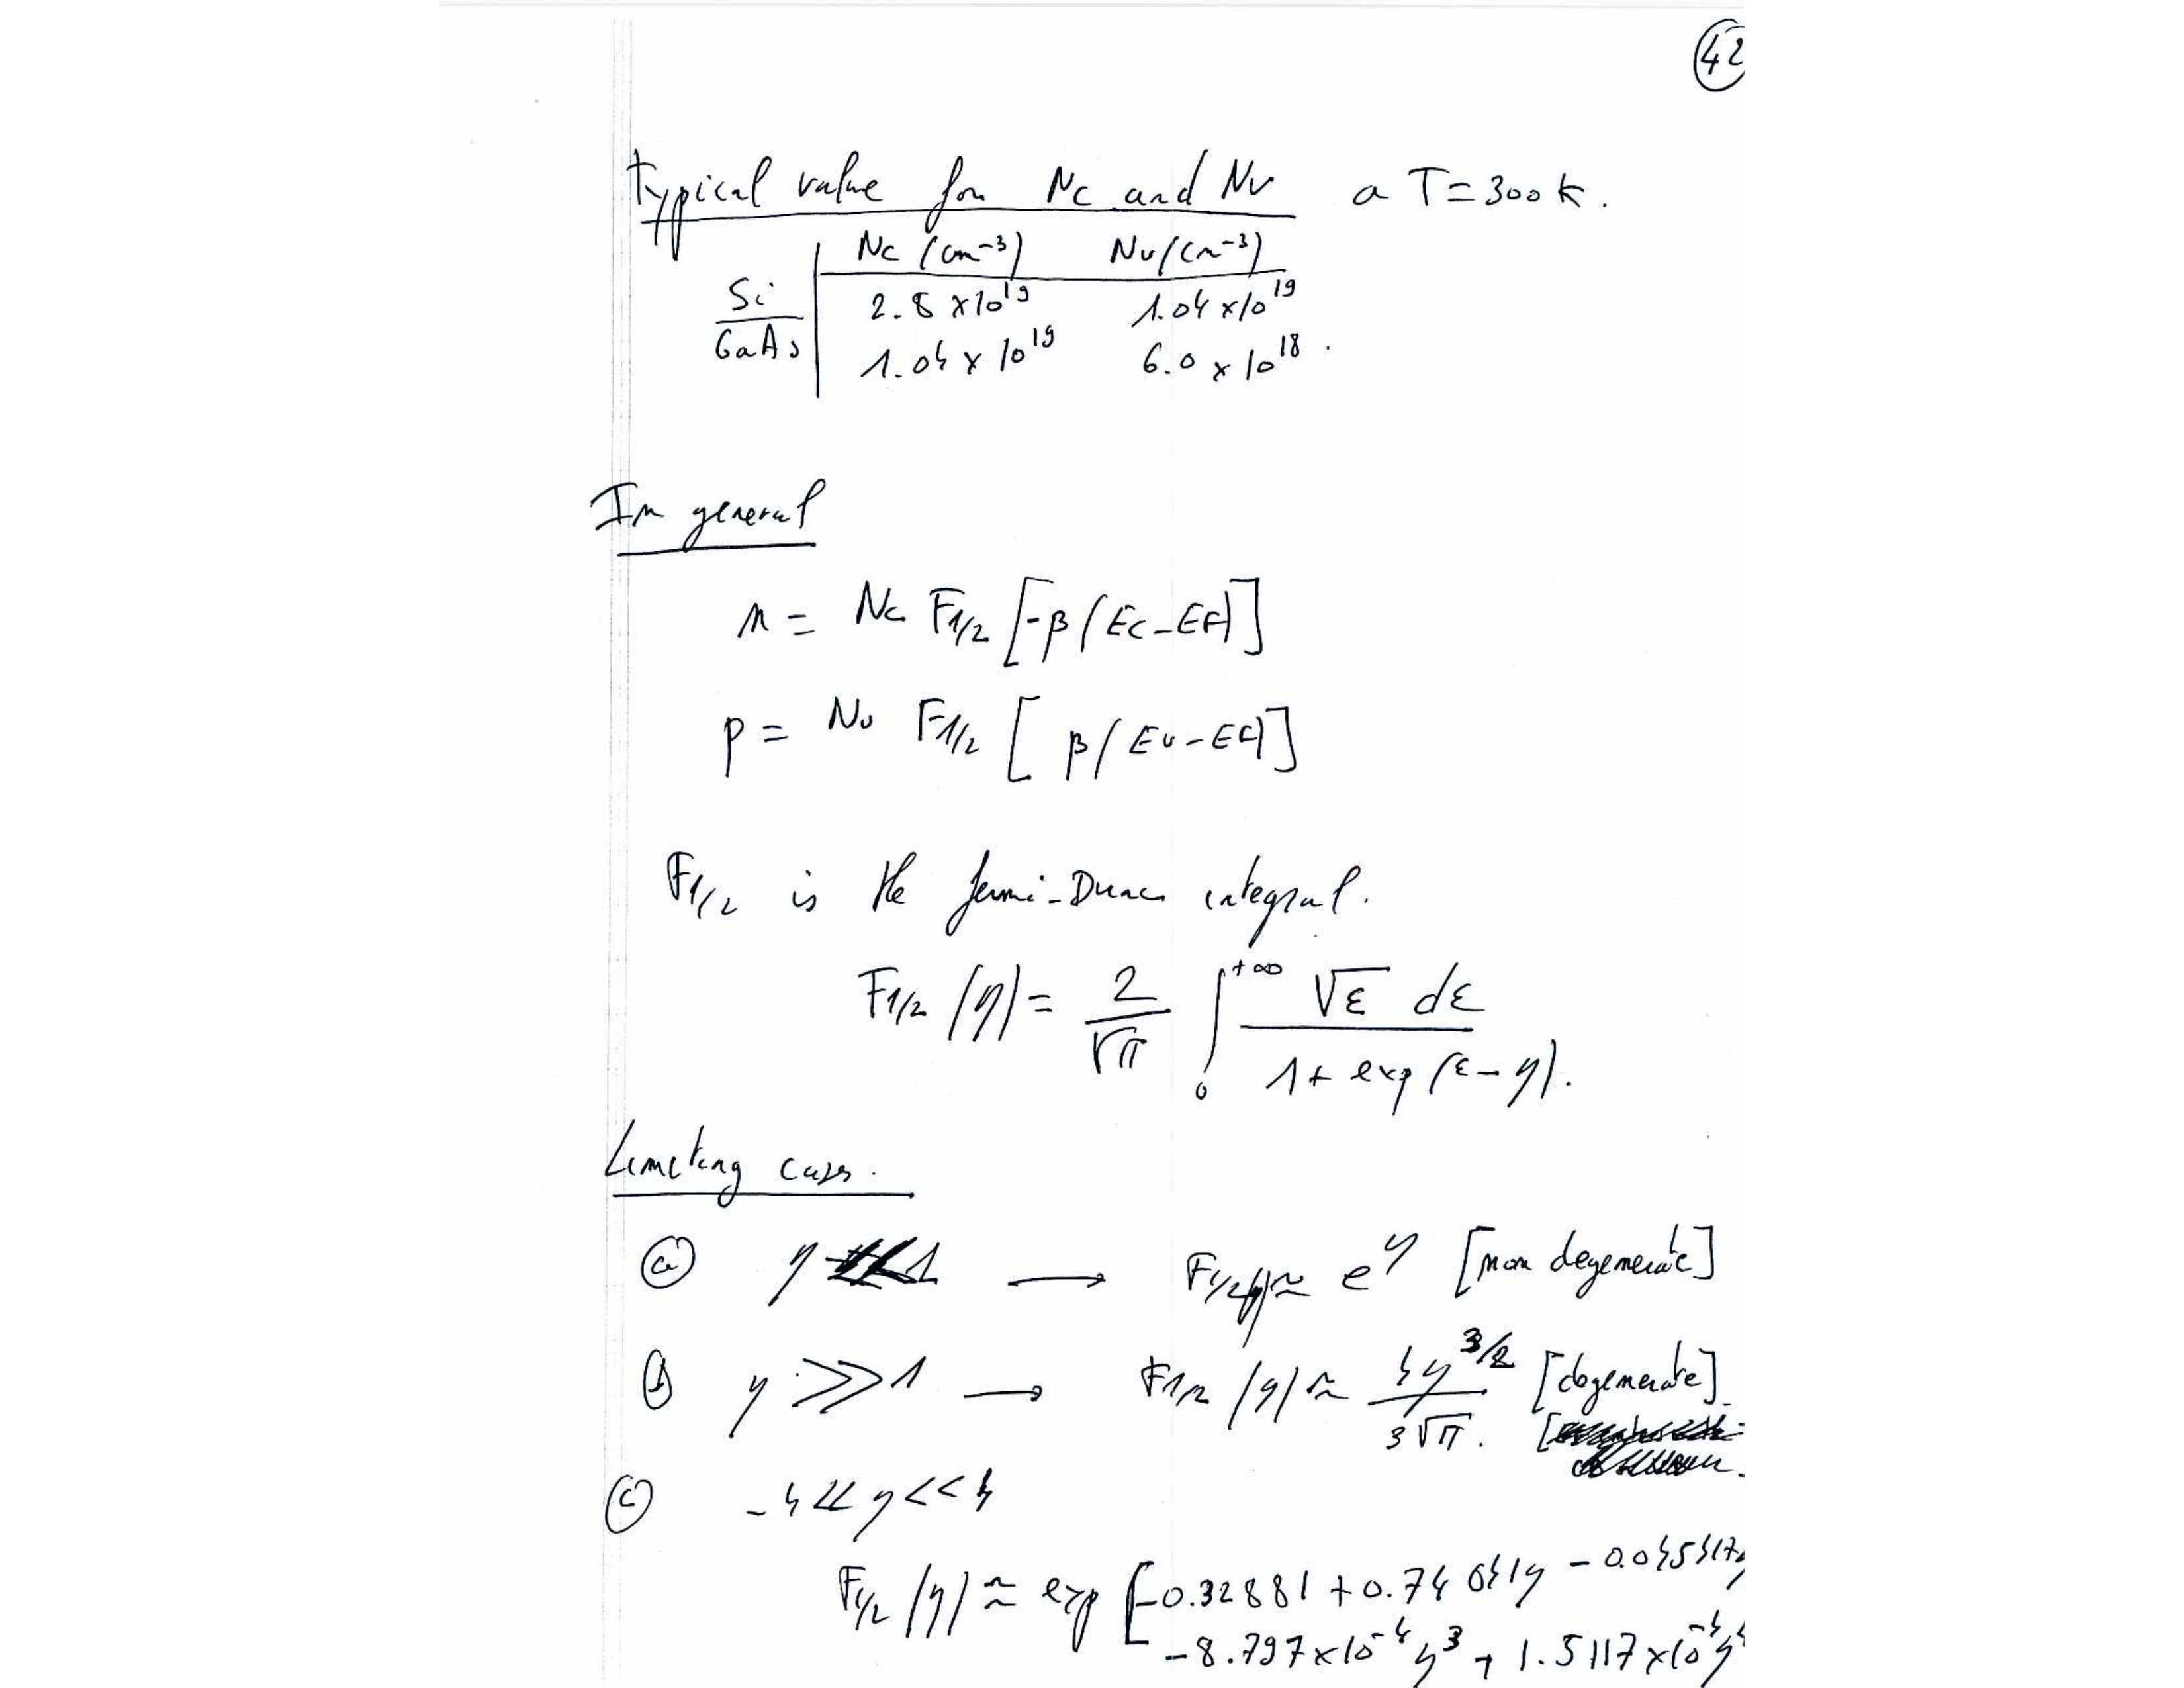 42
Typical value for Nc and Nv a T=300K.
Nc (cm⁻³) Nv (cm⁻³)
Si 2.8 x10¹⁹ 1.04 x10¹⁹
GaAs 1.04 x 10¹⁹ 6.0 x 10¹⁸.
In general
n = Nc F1/2 [-β(Ec-EF)]
p = Nv F1/2 [β(Ev-EF)]
F1/2 is the fermi-Dirac integral.
F1/2 (η) = 2/√π ∫₀^{+∞} √ε dε / 1+ exp(ε-η).
Limiting cases.
(a) η << 1 → F1/2(η) ≈ e^η [non degenerate]
(b) η >> 1 → F1/2 (η) ≈ 4η^{3/2} / 3√π. [degenerate]
(c) -4 << η << 4
F1/2 (η) ≈ exp [-0.32881 + 0.74041η - 0.045417η
-8.797x10⁻⁴ η³ + 1.5117x10⁻⁴η⁴